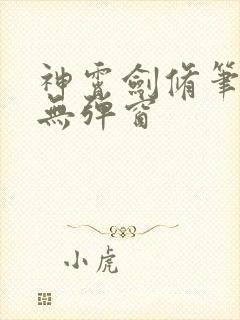 神霄劍脩筆
無彈窗
小虎